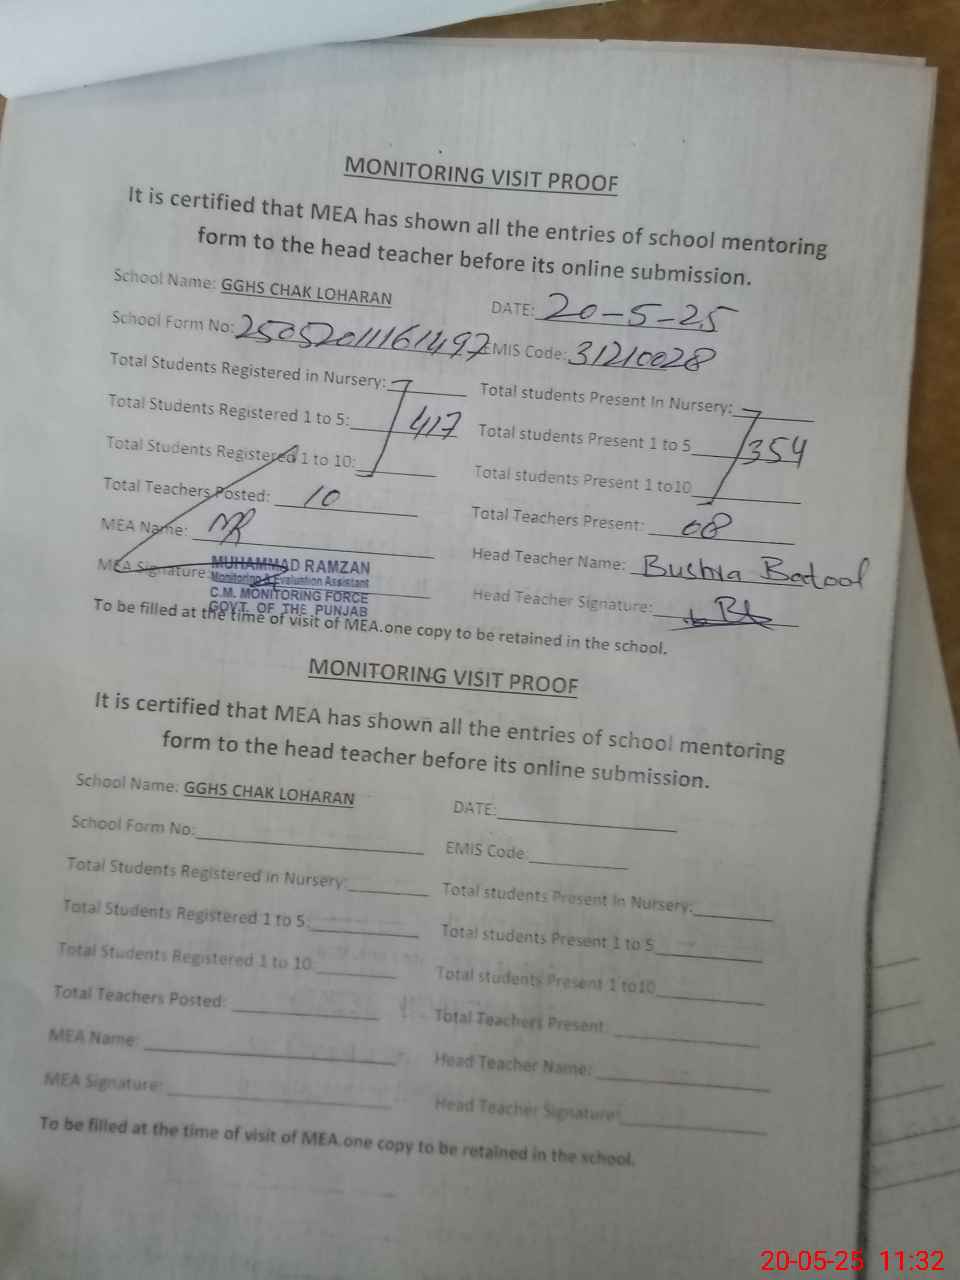 MONITORING VISIT PROOF
It is certified that MEA has shown all the entries of school mentoring
form to the head teacher before its online submission.
School Name: GGHS CHAK LOHARAN
DATE: 20-5-25
School Form No: 25052011161497
EMIS Code: 31210028
Total Students Registered in Nursery:
Total students Present In Nursery:
Total Students Registered 1 to 5: 417
Total students Present 1 to 5 354
Total Students Registered 1 to 10:
Total students Present 1 to10
Total Teachers Posted: 10
Total Teachers Present: 08
MEA Name: MR
Head Teacher Name: Bushra Batool
MEA Signature:
MUHAMMAD RAMZAN
Monitoring & Evaluation Assistant
C.M. MONITORING FORCE
GOVT. OF THE PUNJAB
Head Teacher Signature:
To be filled at the time of visit of MEA.one copy to be retained in the school.
MONITORING VISIT PROOF
It is certified that MEA has shown all the entries of school mentoring
form to the head teacher before its online submission.
School Name: GGHS CHAK LOHARAN
DATE:
School Form No:
EMIS Code:
Total Students Registered in Nursery:
Total students Present In Nursery:
Total Students Registered 1 to 5:
Total students Present 1 to 5
Total Students Registered 1 to 10:
Total students Present 1 to10
Total Teachers Posted:
Total Teachers Present:
MEA Name:
Head Teacher Name:
MEA Signature:
Head Teacher Signature:
To be filled at the time of visit of MEA.one copy to be retained in the school.
20-05-25 11:32